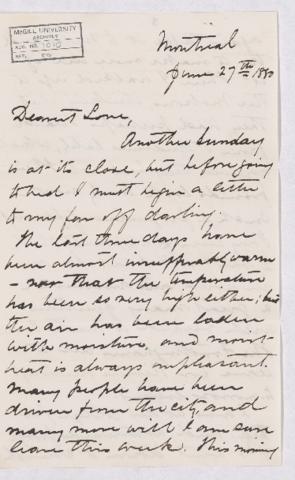 McGILL UNIVERSITY
ARCHIVES
ACC. NO. 1010
REF.
Montreal
June 27th 1880
Dearest Love,
Another Sunday
is at its close, but before going
to bed I must begin a letter
to my far off darling.
The last three days have
been almost insufferably warm
- not that the temperature
has been so very high either; but
the air has been laden
with moisture, and moist
heat is always unpleasant.
Many people have been
driven from the city, and
many more will I am sure
leave this week. This morning